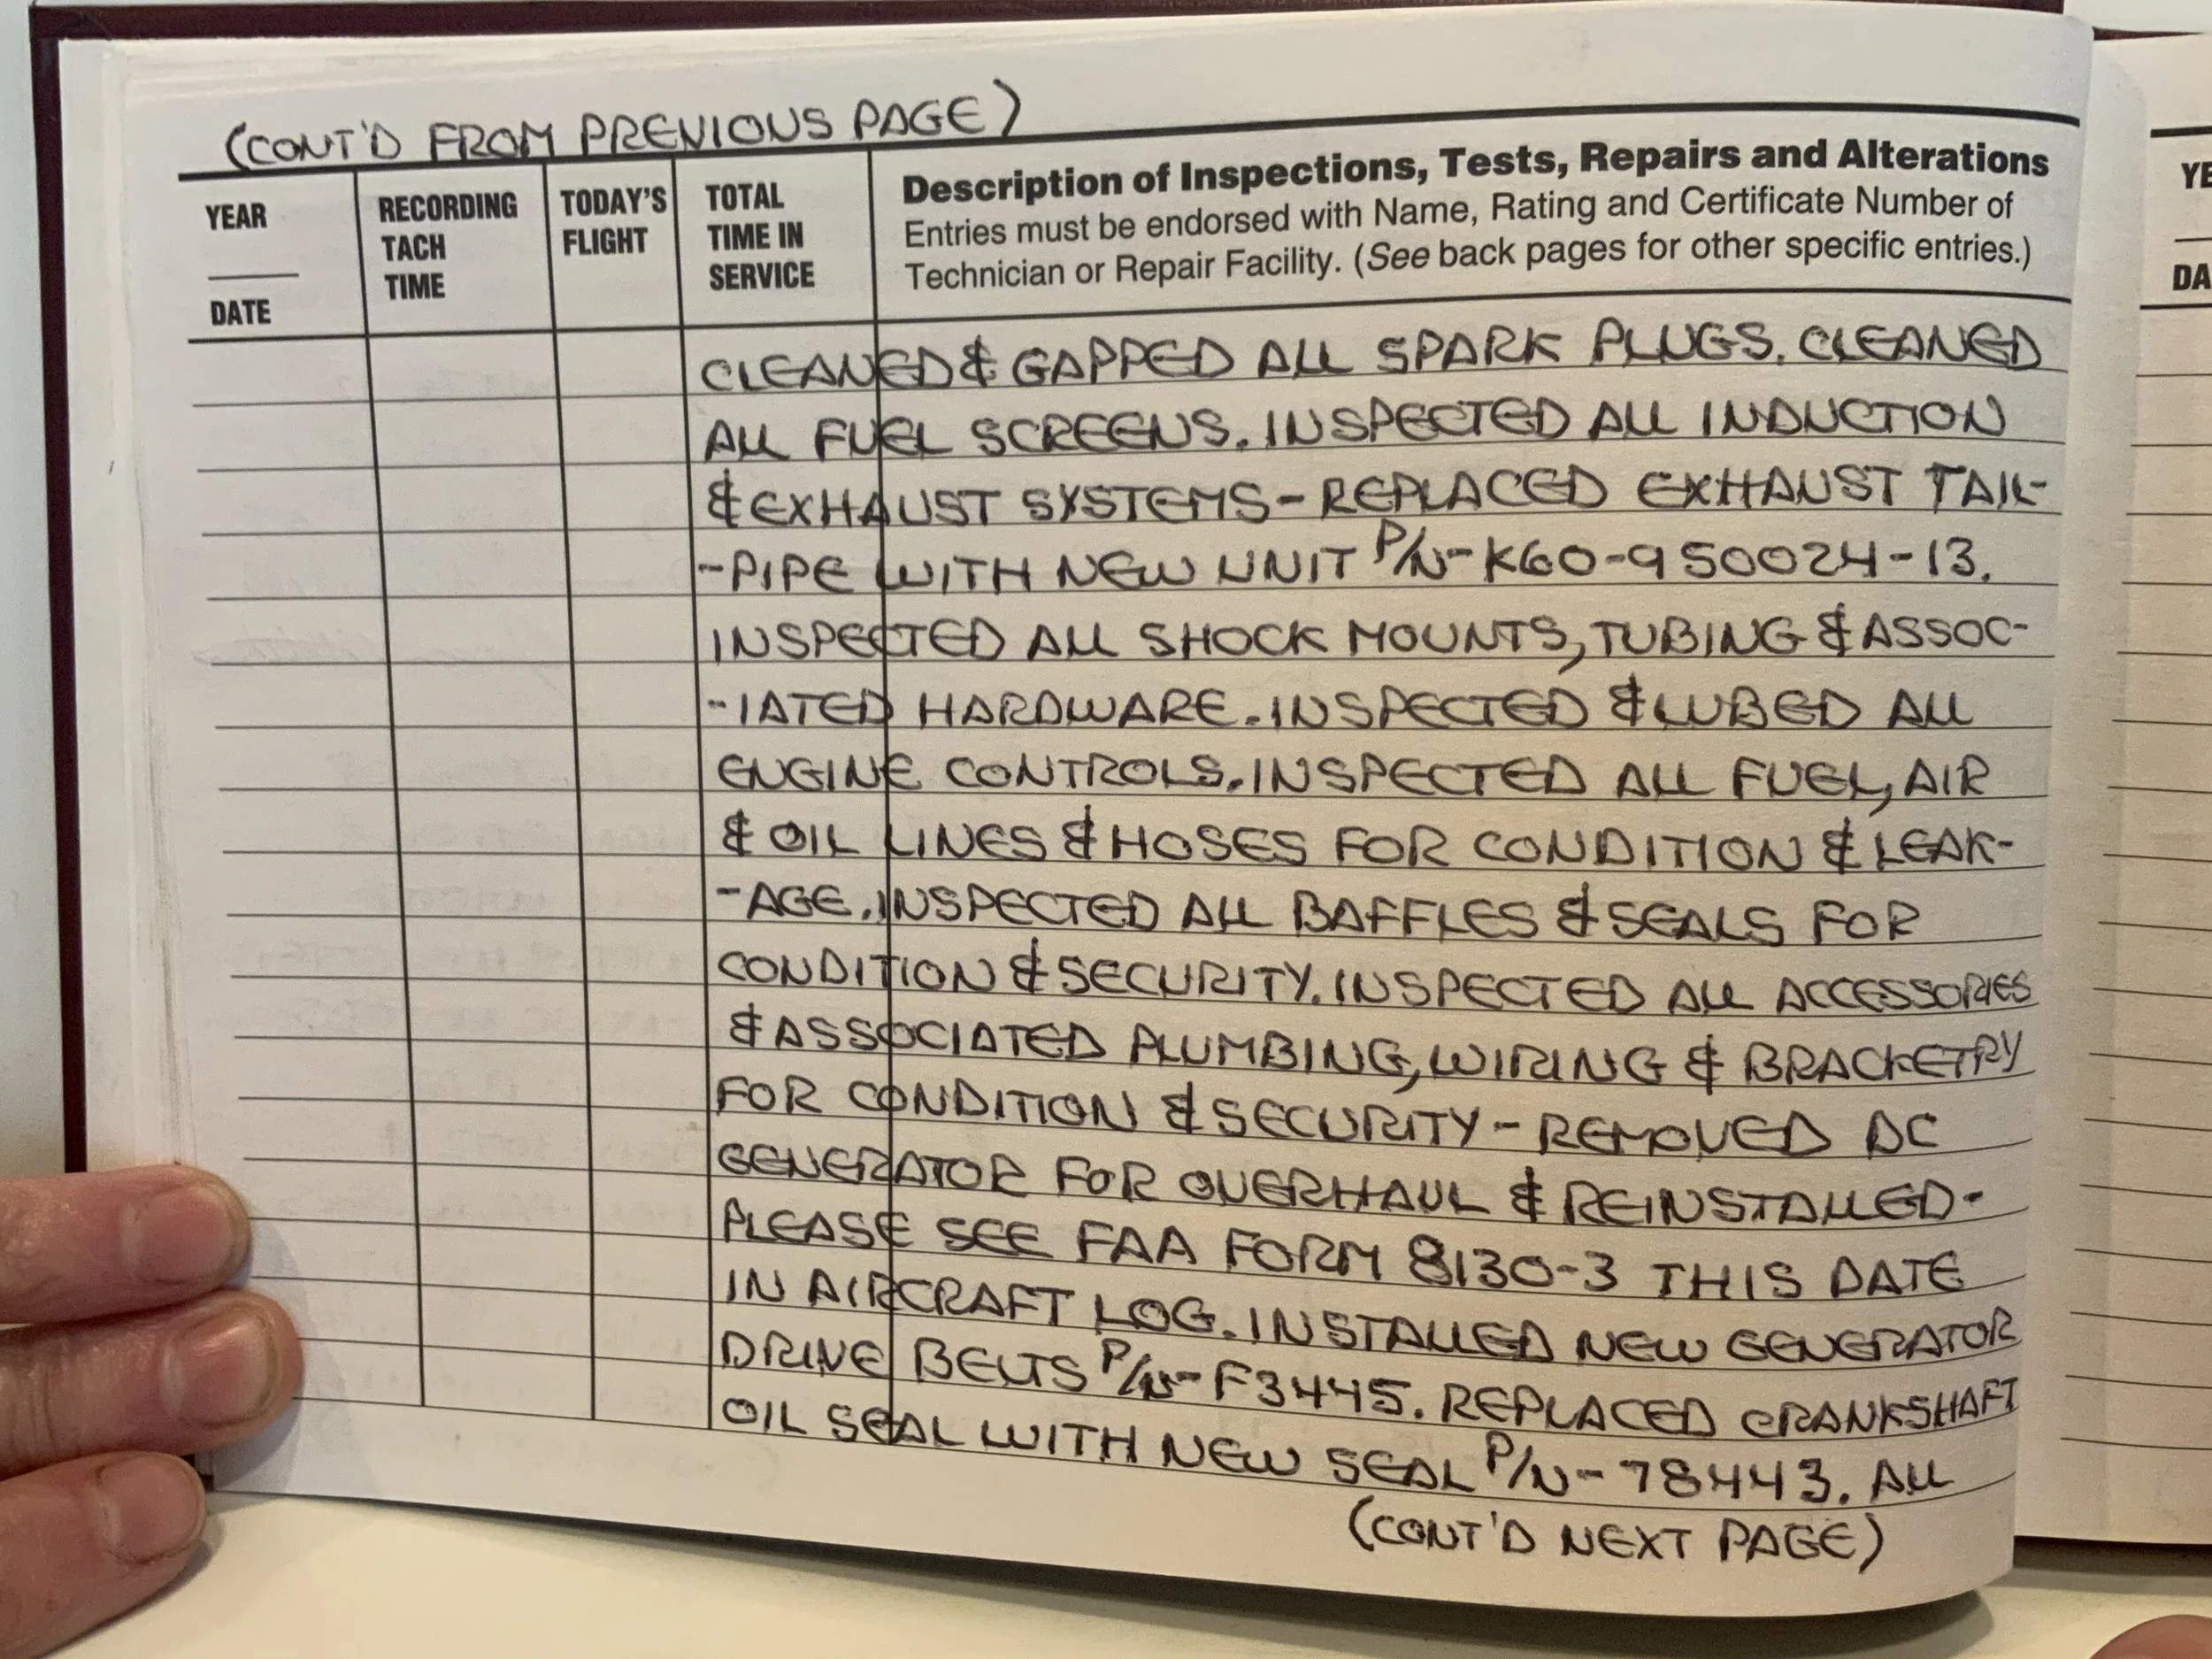 (CONT'D FROM PREVIOUS PAGE)
YEAR
DATE
RECORDING
TACH
TIME
TODAY'S
FLIGHT
TOTAL
TIME IN
SERVICE
Description of Inspections, Tests, Repairs and Alterations
Entries must be endorsed with Name, Rating and Certificate Number of
Technician or Repair Facility. (See back pages for other specific entries.)
CLEANED & GAPPED ALL SPARK PLUGS. CLEANED
ALL FUEL SCREENS. INSPECTED ALL INDUCTION
& EXHAUST SYSTEMS - REPLACED EXHAUST TAIL-
-PIPE WITH NEW UNIT P/N-K60-950024-13.
INSPECTED ALL SHOCK MOUNTS, TUBING & ASSOC-
-IATED HARDWARE. INSPECTED & LUBED ALL
ENGINE CONTROLS. INSPECTED ALL FUEL, AIR
& OIL LINES & HOSES FOR CONDITION & LEAK-
-AGE. INSPECTED ALL BAFFLES & SEALS FOR
CONDITION & SECURITY. INSPECTED ALL ACCESSORIES
& ASSOCIATED PLUMBING, WIRING & BRACKETRY
FOR CONDITION & SECURITY - REMOVED DC
GENERATOR FOR OVERHAUL & REINSTALLED -
PLEASE SEE FAA FORM 8130-3 THIS DATE
IN AIRCRAFT LOG. INSTALLED NEW GENERATOR
DRIVE BELTS P/N-F3445. REPLACED CRANKSHAFT
OIL SEAL WITH NEW SEAL P/N-78443. ALL
(CONT'D NEXT PAGE)
YE
DA